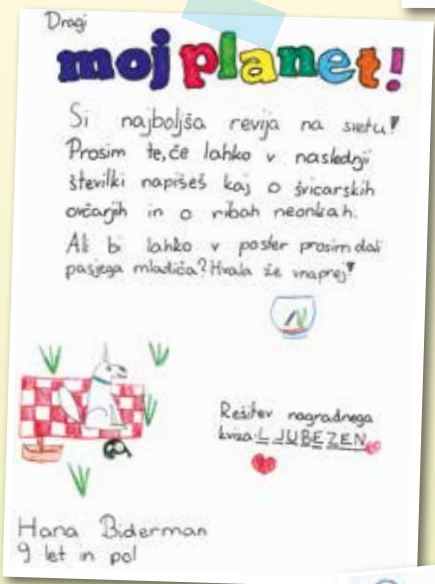 Dragi
moj planet!
Si najboljša revija na svetu!
Prosim te, če lahko v naslednji
številki napišeš kaj o švicarskih
ovčarjih in o ribah neonkah.
Ali bi lahko v poster prosim dali
pasjega mladiča? Hvala že vnaprej!
Rešitev nagradnega
kviza: LJUBEZEN
Hana Biderman
9 let in pol